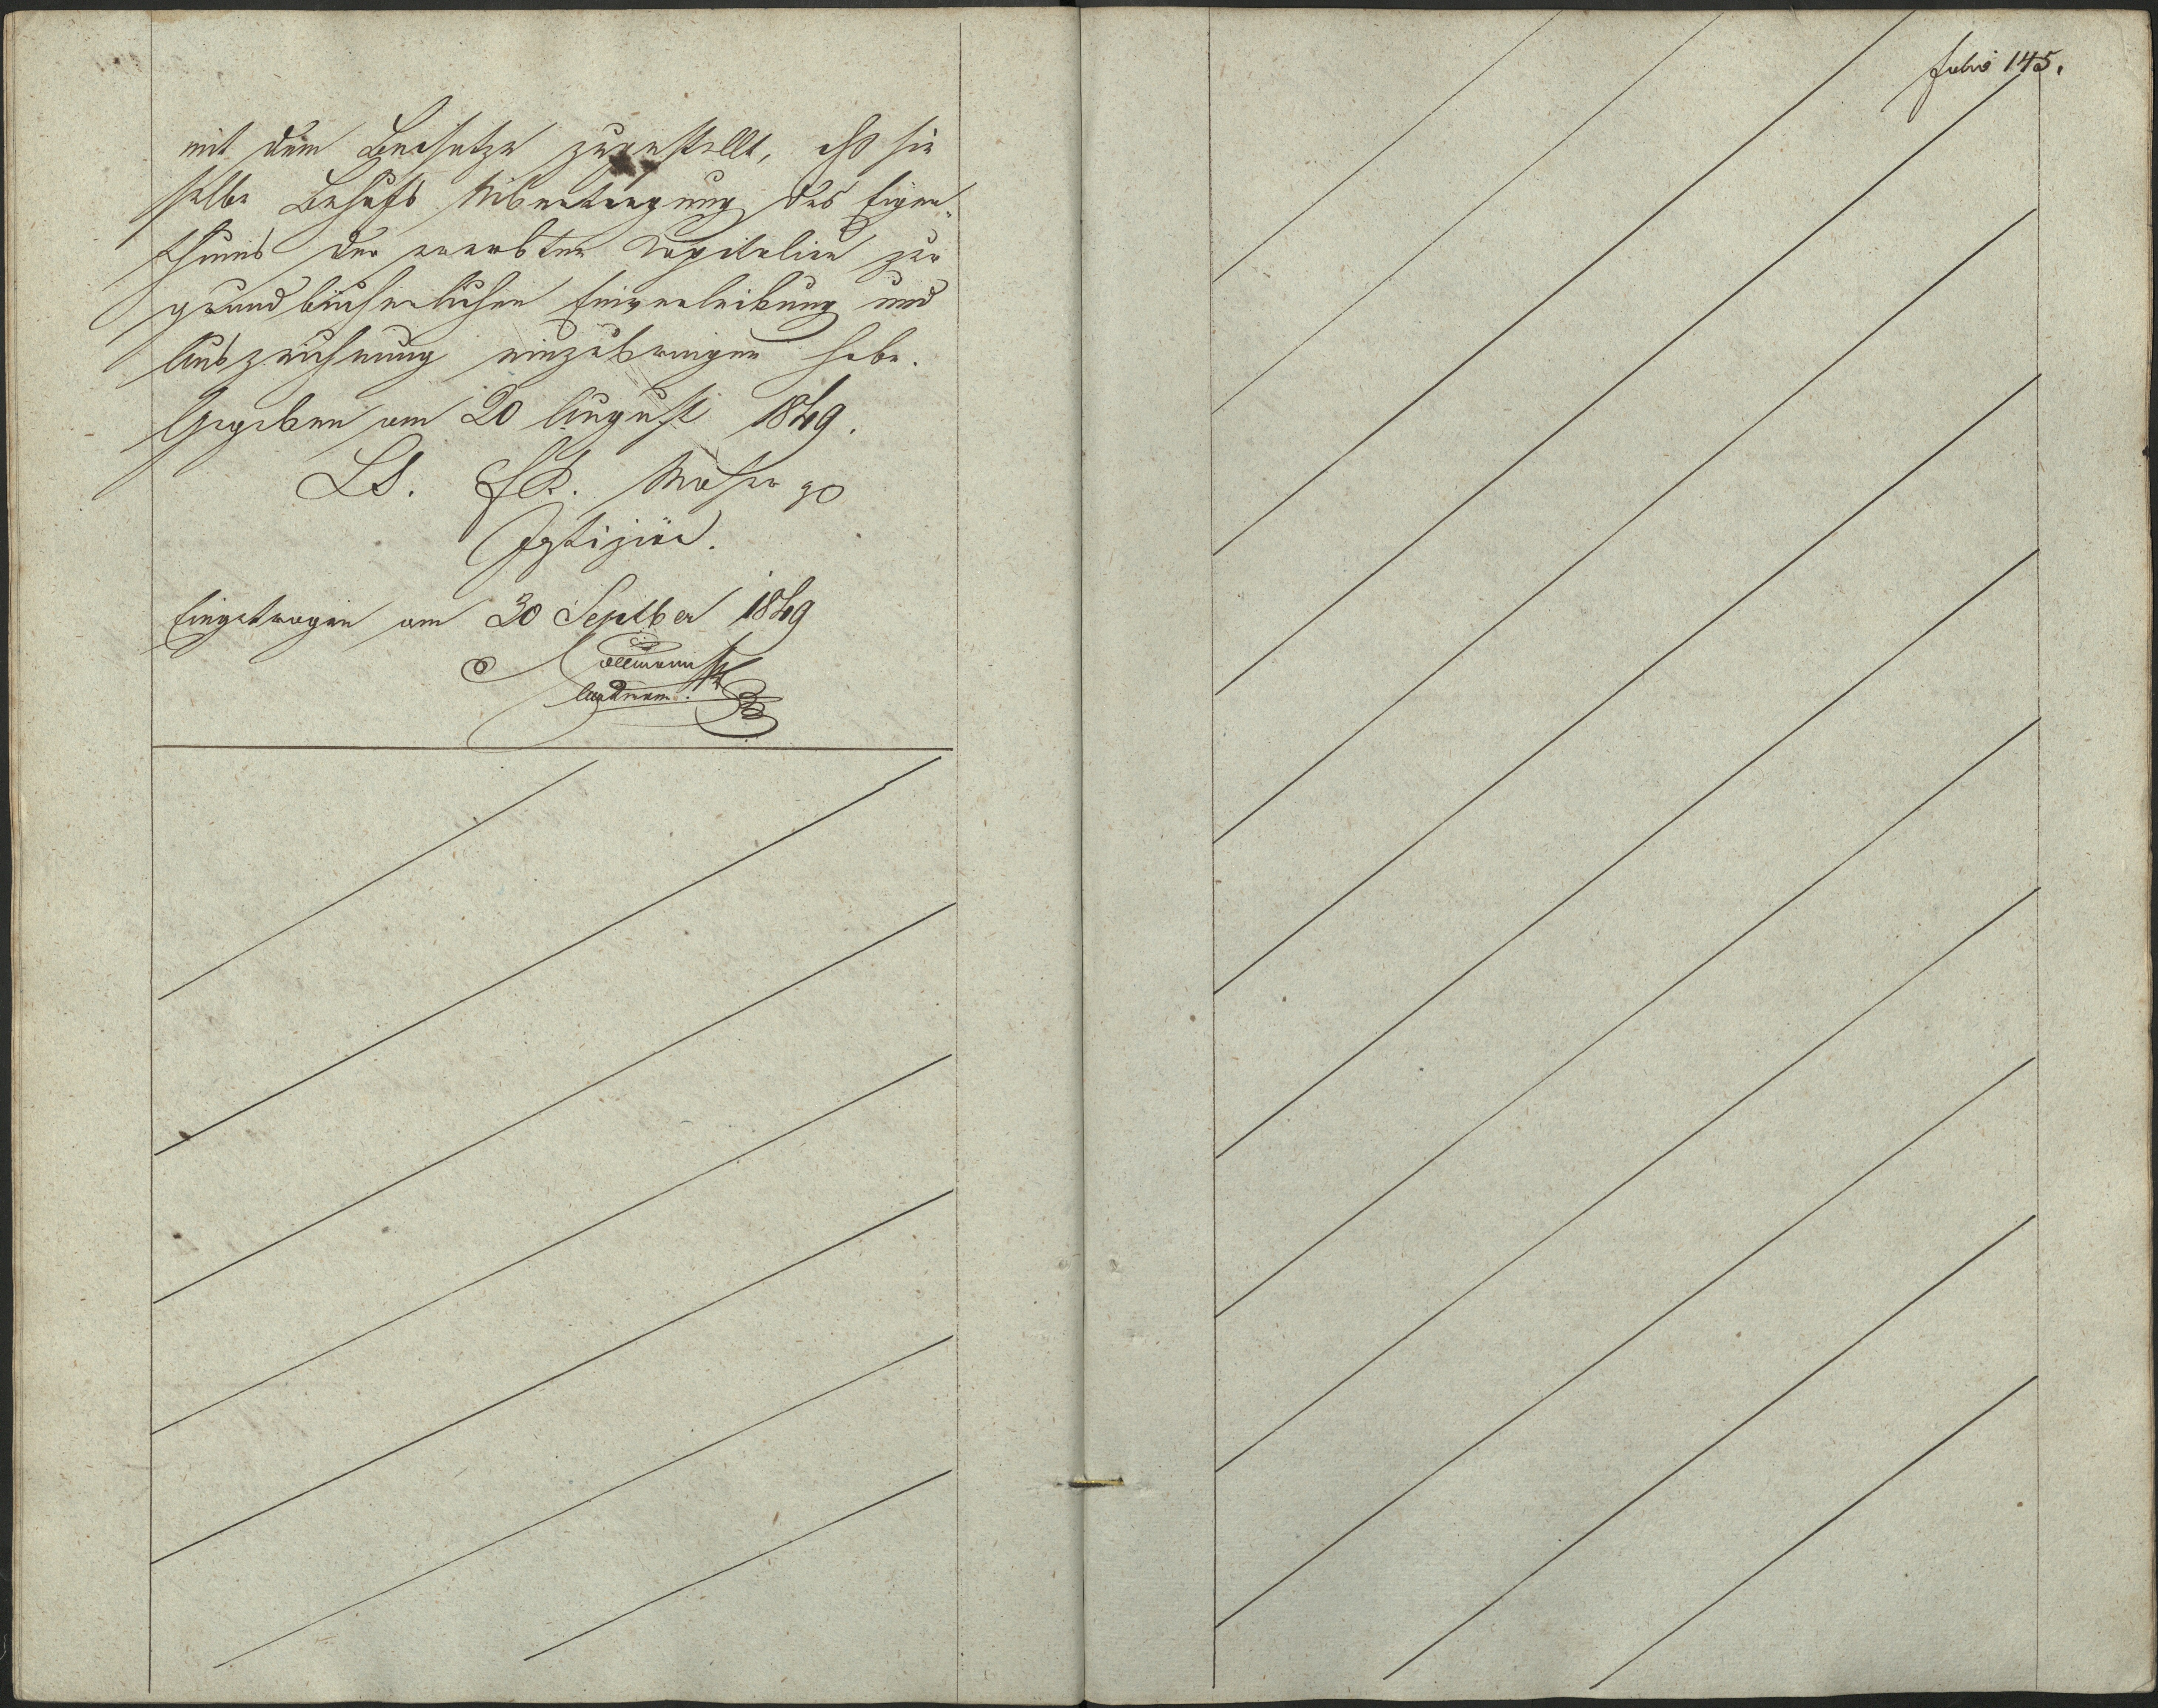 mit dem Beisatze zugestellt, daß sie
selbe Behufs Uibertragung des Eigen„
thums der ererbten Capitalien zur
grundbücherlichen Einverleibung und
Auszeichnung einzubringen habe.
Gegeben am 20 August 1849.
LS.
Justiziär.
Eingetragen am 30 Septber 1849
Folio 145.